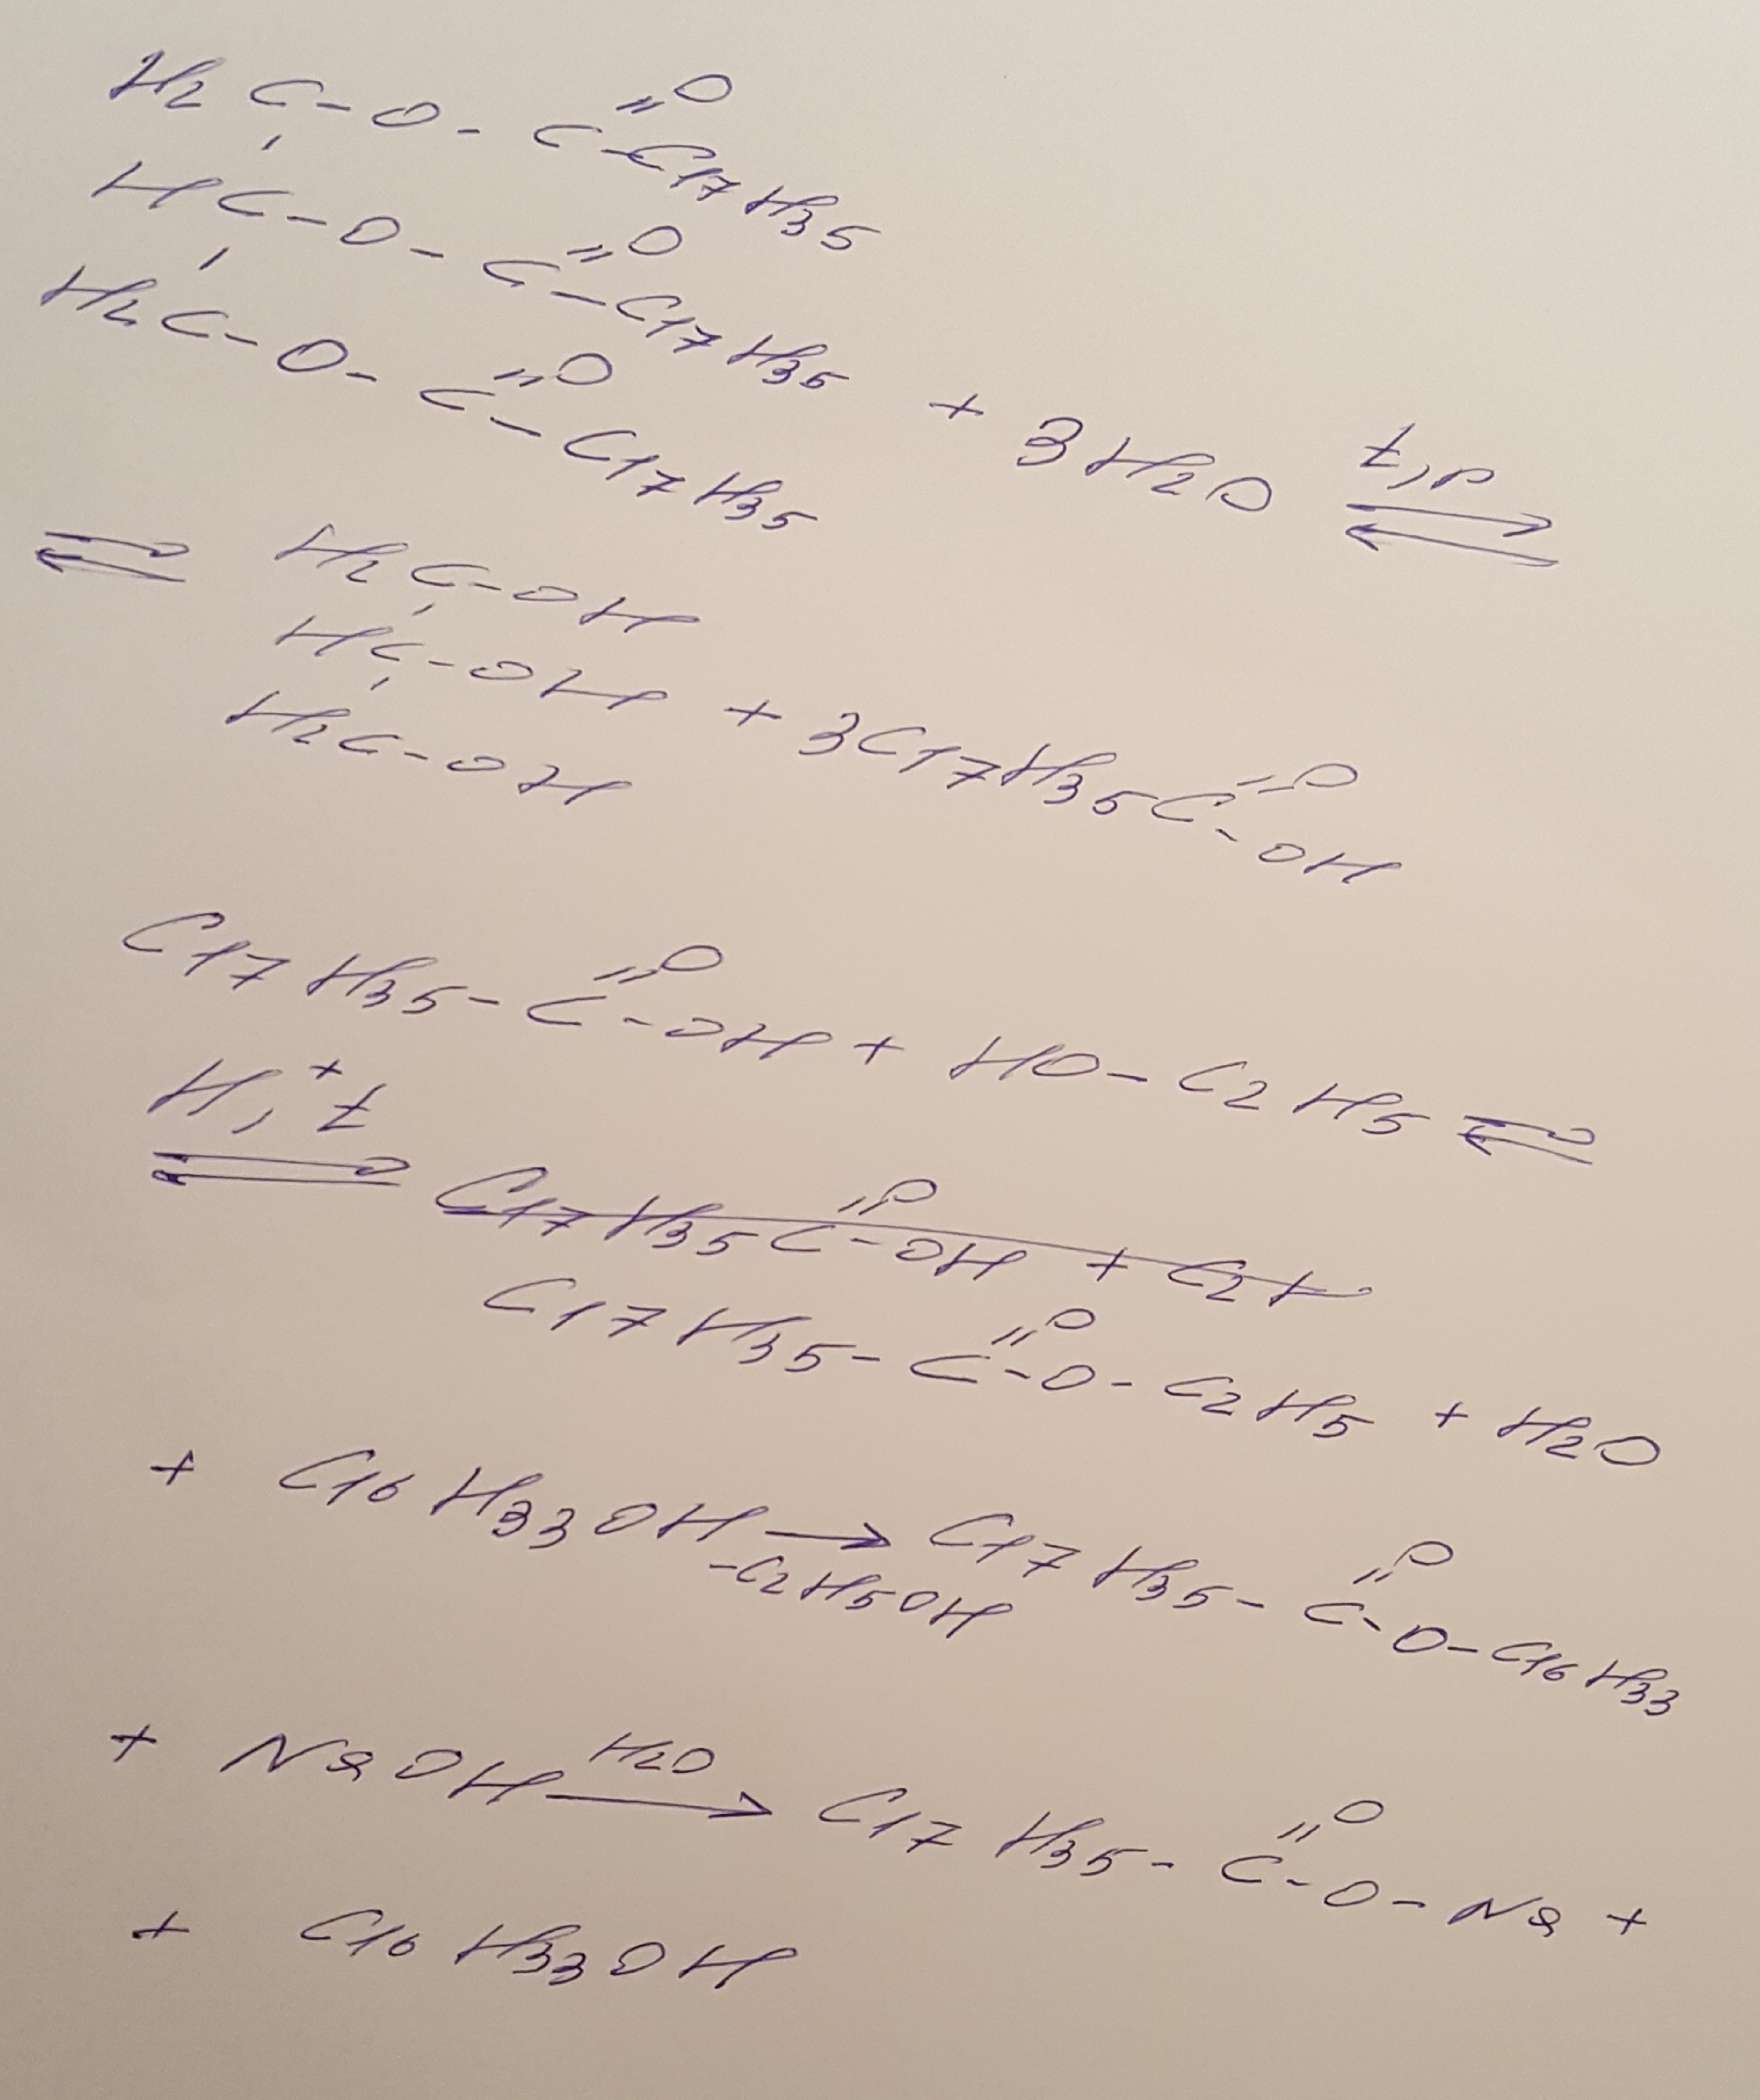 H2C-O-C=O-C17H35
HC-O-C=O-C17H35
H2C-O-C=O-C17H35 + 3H2O t,p ⇌
⇌ H2C-OH
HC-OH + 3C17H35C=O-OH
H2C-OH
C17H35-C=O-OH + HO-C2H5 ⇌
H+, t ⇌ C17H35C=O-OH + C2H
C17H35-C=O-O-C2H5 + H2O
+ C16H33OH → -C2H5OH C17H35-C=O-O-C16H33
+ NaOH H2O → C17H35-C=O-O-Na +
+ C16H33OH